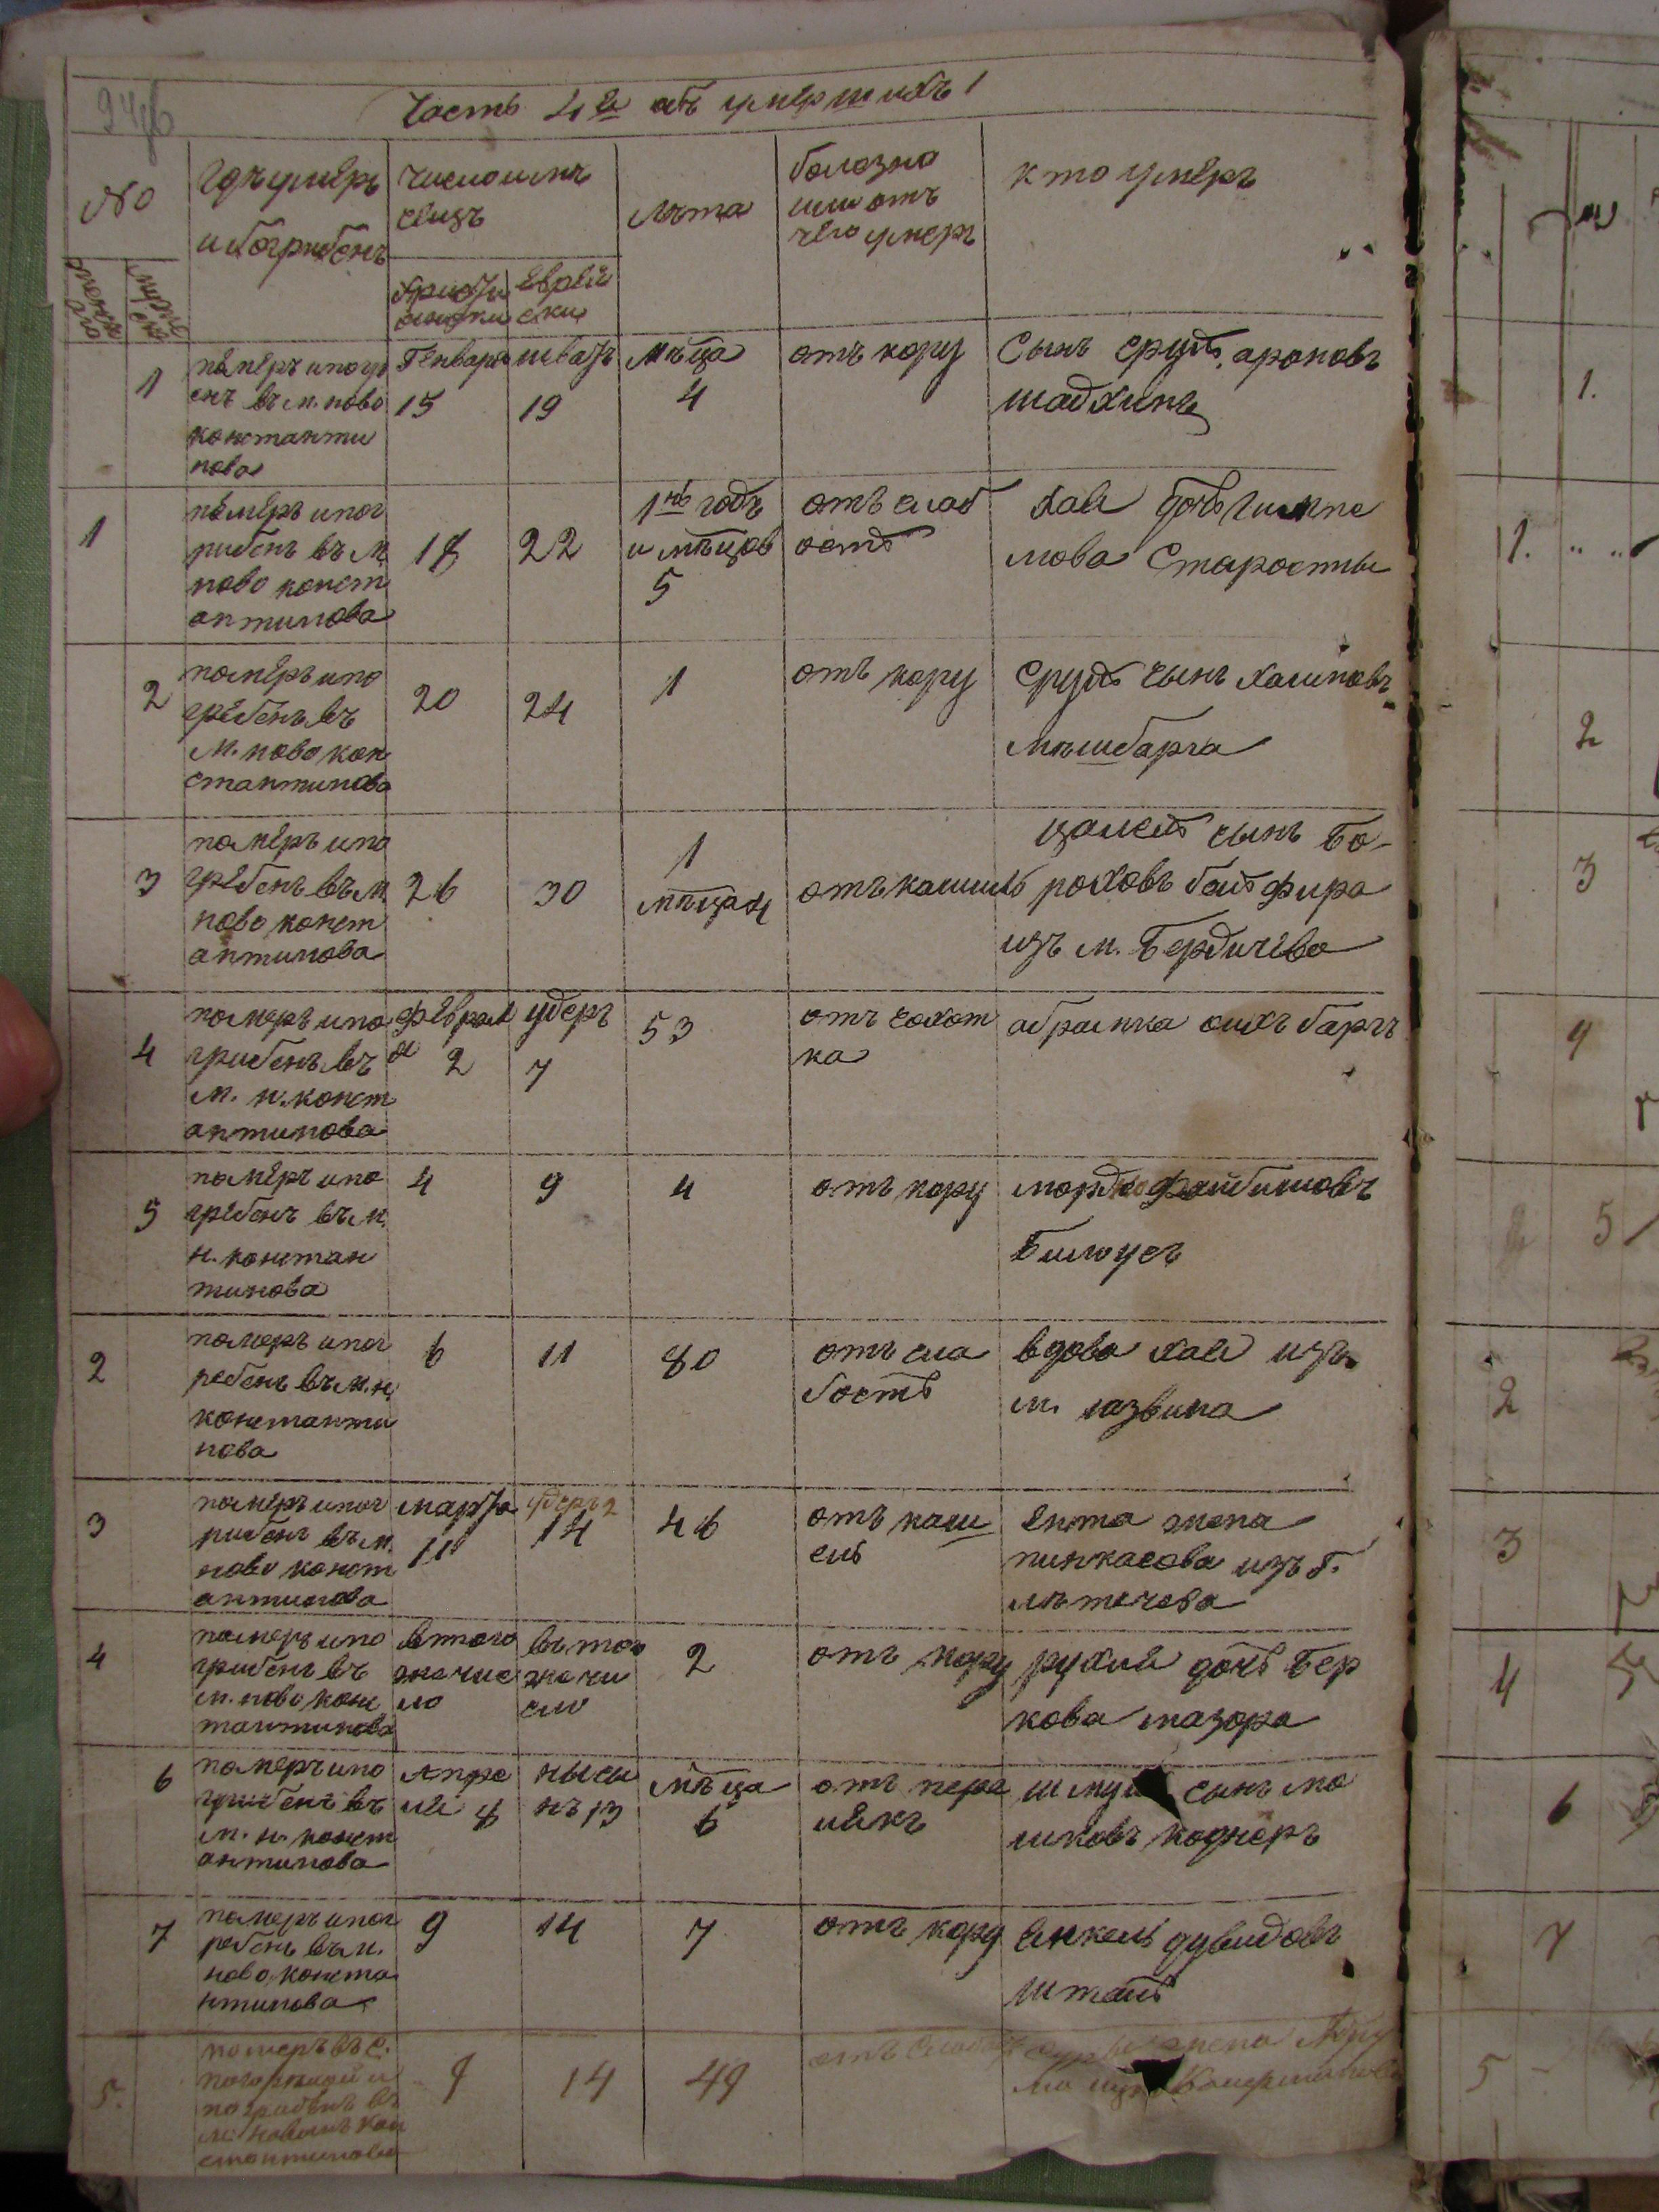 Часть 4я объ умершихъ 1
No
гдѣ умеръ
и погрибенъ
число и мѣ
сяцъ
христи
ански
еврей
ски
лѣта
болезнь
или отъ
чего умеръ
кто умеръ
женск
аго
мужес
каго
1
померъ и погр
енъ въ м. ново
константи
нова
Генваря
15
шватъ
19
мѣца
4
отъ кору
Сынъ сруль ароновъ
шадхинъ
1
померъ и пог
рибенъ въ м.
ново конст
антинова
18
22
1нъ годъ
и мѣцов
5
отъ слаб
ость
хая дочь
мова Старосты
2
померъ и по
гребенъ въ
м. ново кон
стантинова
20
24
1
отъ кору
сруль сынъ хаимовъ
3
померъ и по
гребенъ въ м.
ново конст
антинова
26
30
1
мѣца 4
отъ кашль
сынъ Бо-
роховъ
изъ м. Бердичева
4
померъ и по
грибенъ въ
м. н. конст
антинова
феврал
я 2
удеръ
7
53
отъ сохот
ка
абрамка
5
померъ и по
гребенъ въ м.
н. констан
тинова
4
9
4
отъ кору
мордко файбишовъ
Билоусъ
2
померъ и пог
ребенъ въ м. н.
константи
нова
6
11
80
отъ сла
бость
вдова хая изъ
м.
3
померъ и пог
рибенъ въ м.
ново конст
антинова
марта
11
удеръ 2
14
46
отъ каш
ель
ента жена
пинкасова изъ г.
летичева
4
померъ и по
грибенъ въ
м. ново конс
тантинова
втого
же чис
ло
въ того
же чи
сло
2
отъ кору
рухля дочь Бер
кова мазора
6
померъ и по
грибенъ въ
м. н. конст
антинова
Апре
ля 8
нысы
нъ 13
мѣца
6
отъ пера
ликъ
шмуль сынъ мо
шковъ
7
померъ и пог
ребенъ въ м.
ново конста
нтинова
9
14
7
отъ кору
Янкель дувидовъ
штейнъ
5.
померъ въ с.
погрибенъ въ
м. новомъ кон
стантинове
9
14
49
отъ
жена
1.
1.
2
3
4
5
2
3
4
6
7
5